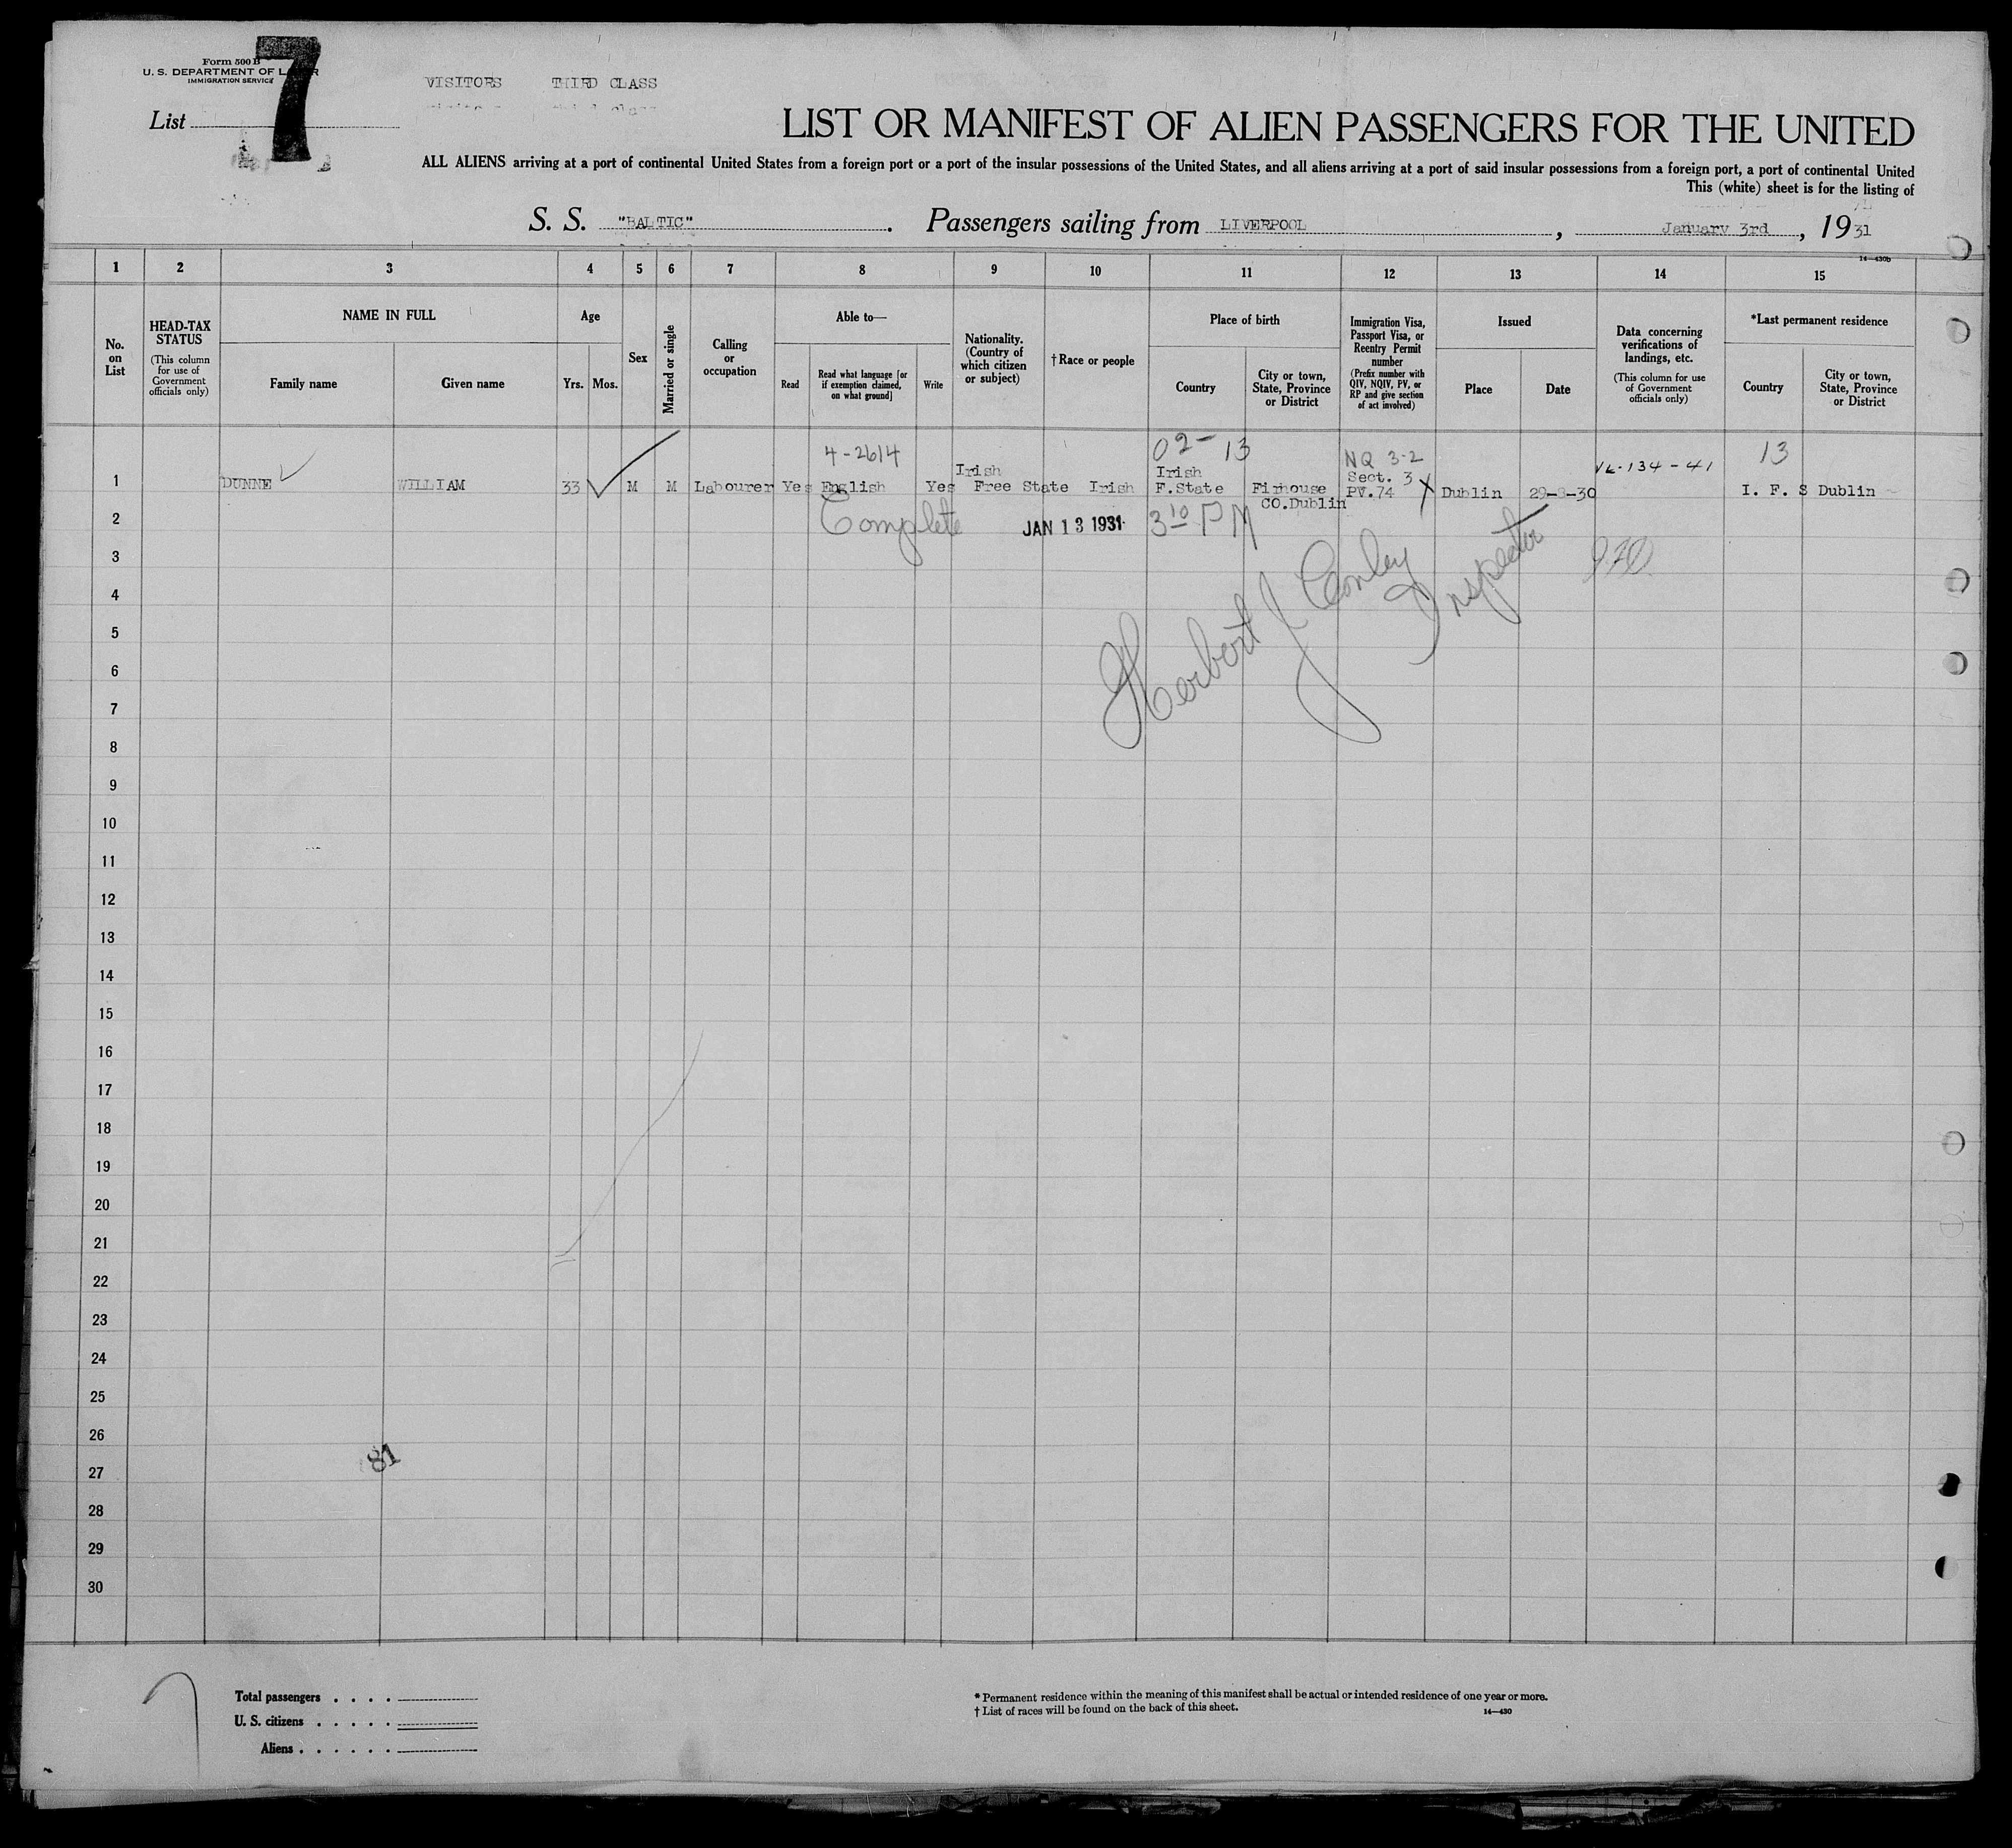 Form 500 B
U. S. DEPARTMENT OF LABOR
IMMIGRATION SERVICE
7
VISITORS THIRD CLASS
List
LIST OR MANIFEST OF ALIEN PASSENGERS FOR THE UNITED
ALL ALIENS arriving at a port of continental United States from a foreign port or a port of the insular possessions of the United States, and all aliens arriving at a port of said insular possessions from a foreign port, a port of continental United
This (white) sheet is for the listing of
S. S. "BALTIC". Passengers sailing from LIVERPOOL, January 3rd, 1931
14—430b
1 2 3 4 5 6 7 8 9 10 11 12 13 14 15
No. on List
HEAD-TAX STATUS
(This column for use of Government officials only)
NAME IN FULL
Family name
Given name
Age
Yrs. Mos.
Sex
Married or single
Calling or occupation
Able to—
Read
Read what language [or if exemption claimed, on what ground]
Write
Nationality. (Country of which citizen or subject)
†Race or people
Place of birth
Country
City or town, State, Province or District
Immigration Visa, Passport Visa, or Reentry Permit number
(Prefix number with QIV, NQIV, PV, or RP and give section of act involved)
Issued
Place
Date
Data concerning verifications of landings, etc.
(This column for use of Government officials only)
*Last permanent residence
Country
City or town, State, Province or District
4-2614 02-13 NQ 3-2 13
1 DUNNE WILLIAM 33 M M Labourer Yes English Yes Irish Free State Irish Irish F.State Firhouse CO.Dublin Sect. 3 PV.74 Dublin 29-8-30 I. F. S Dublin
2 Complete JAN 13 1931 3 10 PM
3
4
5
Herbert J Conley Inspector
6
7
8
9
10
11
12
13
14
15
16
17
18
19
20
21
22
23
24
25
26
81
27
28
29
30
Total passengers . . . .
U. S. citizens . . . . .
Aliens . . . . . .
* Permanent residence within the meaning of this manifest shall be actual or intended residence of one year or more.
† List of races will be found on the back of this sheet.
14—430